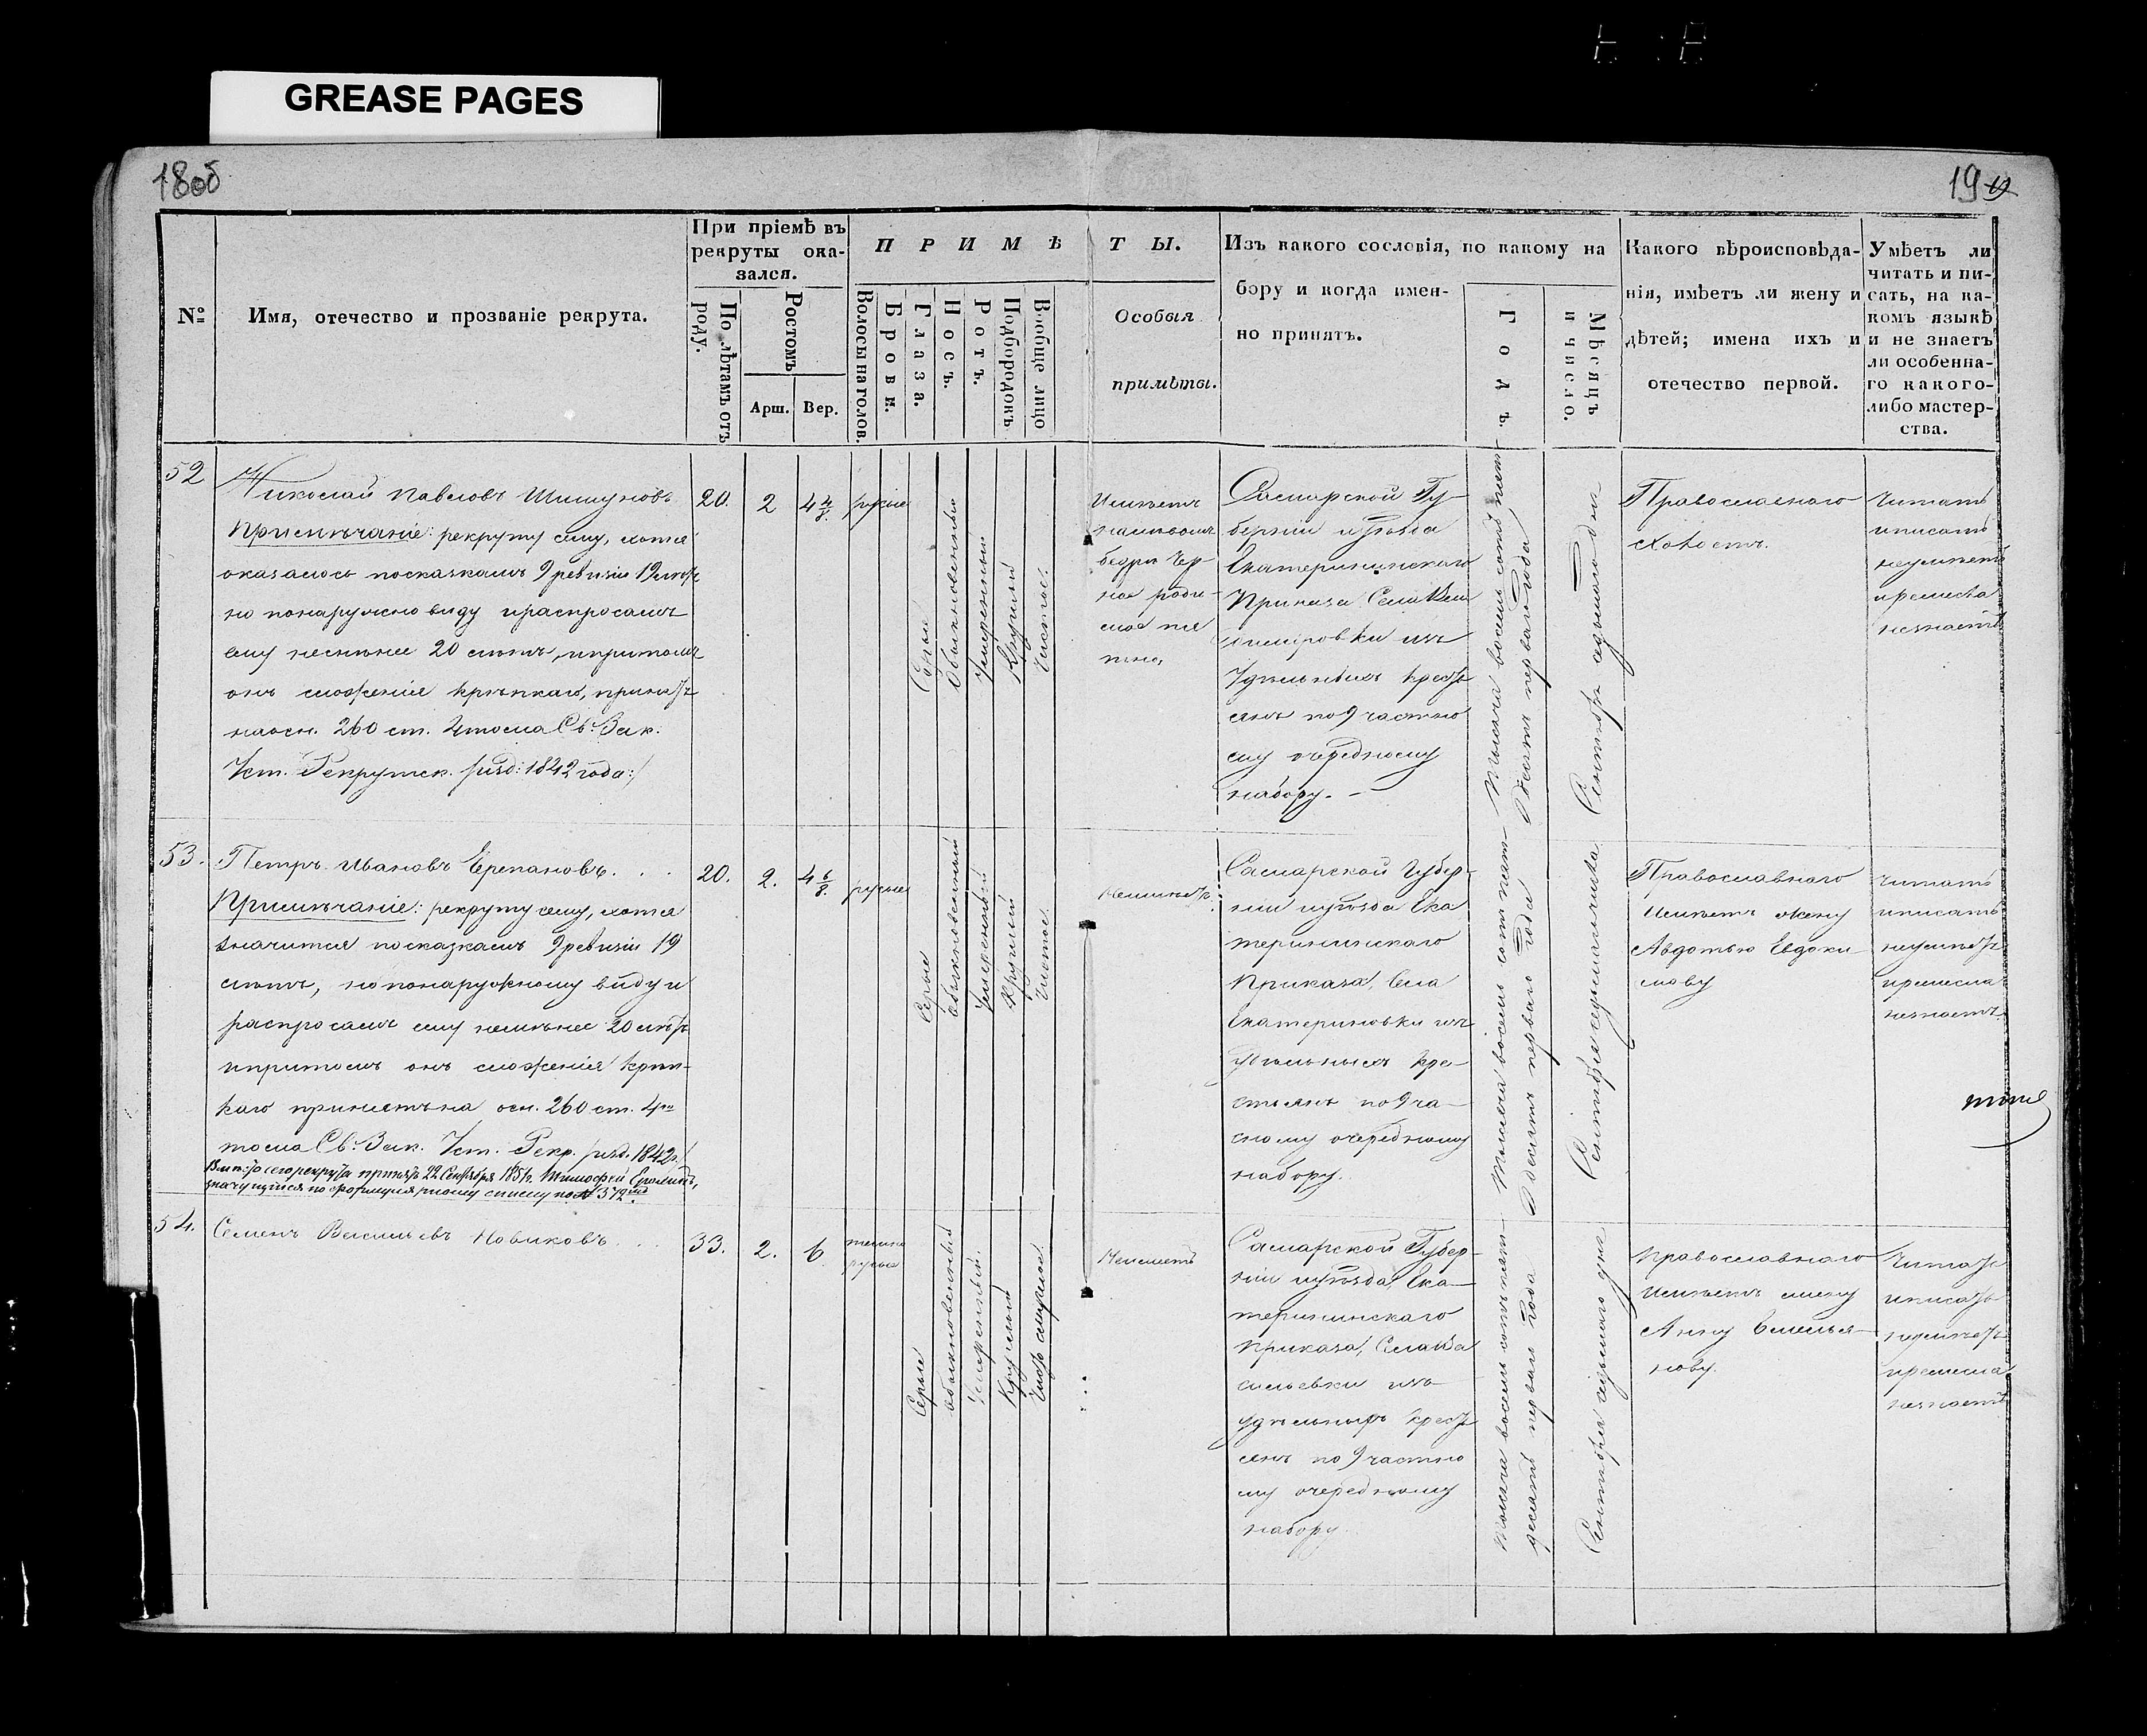 GREASE PAGES
18об
19
№
Имя, отечество и прозваніе рекрута.
При пріемѣ въ
рекруты ока-
зался.
По лѣтамъ отъ
роду.
Ростомъ
Арш.
Вер.
ПРИМѢТЫ.
Волосы на голов.
Брови.
Глаза.
Носъ.
Ротъ.
Подбородокъ
Вообще лицо
Особыя
примѣты.
Изъ какого сословія, по какому на
бору и когда имен-
но принятъ.
Годъ.
Мѣсяцъ
и число.
Какого вѣроисповѣда-
нія, имѣетъ ли жену и
дѣтей; имена ихъ и
отечество первой.
Умѣетъ ли
читать и пи-
сать, на ка-
комъ языкѣ
и не знаетъ
ли особенна-
го какого-
либо мастер-
ства.
52
Николай Павловъ Шишуновъ
Примѣчаніе: рекруту сему, хотя
оказалось посказкамъ 9 ревизіи 19 лѣтъ
но понаружно виду и распросамъ
ему неменѣе 20 лѣтъ, и притомъ
онъ сложенія крѣпкаго, принятъ
наосн. 260 ст. 4 тома Св: Зак.
Уст. Рекрутск. изд: 1842 года:/
20.
2
4 4/8.
русые
Серые
Обыкновенный
Умеренный
Круглый
Чистое.
Имѣетъ
налевомъ
бедри чер-
ное роди-
мое пя
тно,
Самарской Гу-
берніи и уѣзда
Екатерининскаго
Приказа Села
из
Удѣльныхъ крестъ
янъ по 9 частно
му очередному
набору. –
Тысяча восемь сотъ пять
десятъ перваго года
Сентября седьмаго дня
Православнаго
холостъ.
Читать
и писать
неумѣетъ
и ремесла
незнаетъ
53.
Петръ Ивановъ Ерепановъ. . .
Примѣчаніе: рекруту сему, хотя
значится посказкамъ 9 ревизіи 19
лѣтъ, но понаружному виду и
распросамъ ему неменѣе 20 лѣтъ
и притомъ онъ сложенія крѣп-
каго принятъ на осн. 260 ст. 4го
тома Св: Зак. Уст. Рекр. изд. 1842 г./
Вмѣсто сего рекрута принятъ 22 Сентября 1851 г. Тимофей
значущійся по формулярному списку по № 372мъ
20.
2.
4 6/8.
русые
Серые
обыкновенный
Умеренный
Круглый
Чистое.
Неимѣетъ.
Самарской Губер-
ніи и уѣзда Ека
терининскаго
Приказа, Села
Екатериновки изъ
удѣльныхъ кре-
стьянъ по 9 ча-
сному очередному
набору.
Тысяча восемь сотъ пять
десятъ перваго года
Сентября седьмаго числа
Православнаго
имѣетъ жену
Авдотью Евдоки
мову
читать
и писать
неумѣетъ
и ремесла
незнаетъ.
54.
Семенъ Васильевъ Новиковъ . . .
33.
2.
6
темно
русые
Серые
обыкновенный
Умеренный.
Круглый
Неимѣетъ
Самарской Губер-
ніи и уѣзда, Ека-
терининскаго
приказа, Села Ва
сильевки изъ
удѣльныхъ кресть
янъ по 9 частно
му очередному
набору.
Тысяча восемь сотъ пять
десятъ перваго года
Сентября седьмаго дня
Православнаго
имѣетъ жену
Анну Емелья-
нову.
Читать
и писать
неумѣетъ
и ремесла
незнаетъ